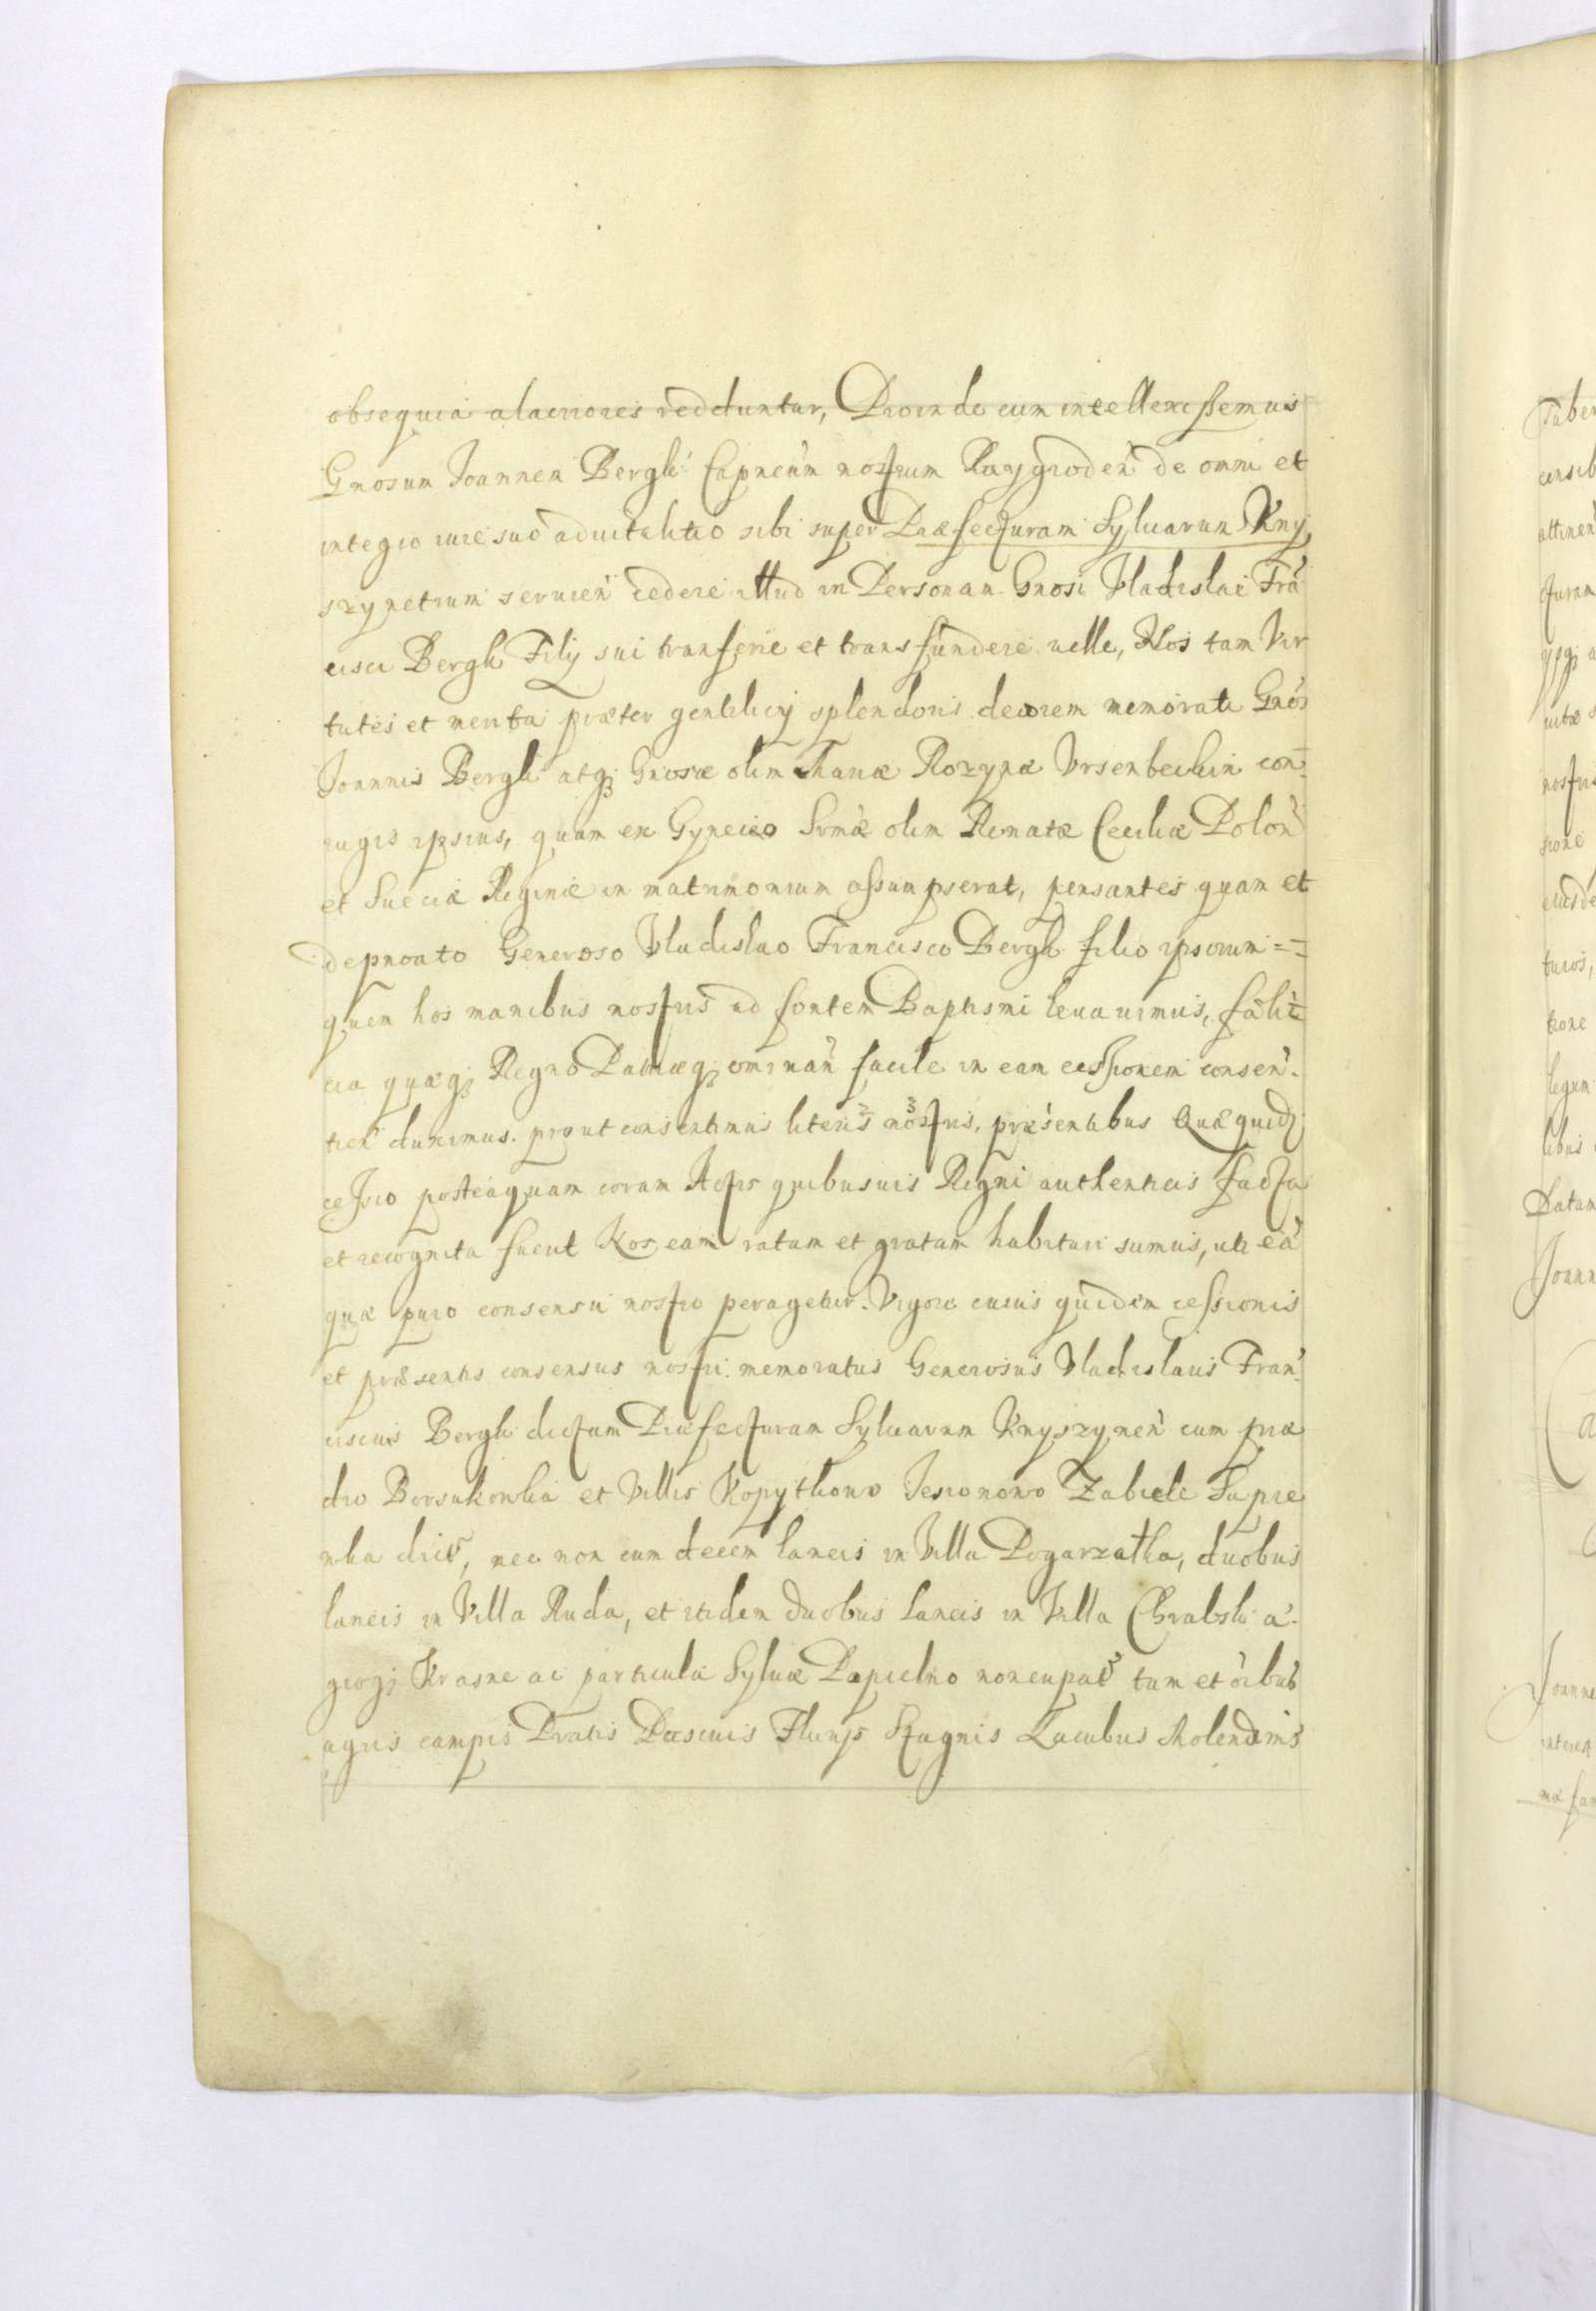 obsequia alacriores redduntur, Proinde cum intellexissemus
Gnosum Joannem Bergh Capneum nostrum Raygroden de omni et
integro iure suo aduitalitio sibi super Præfecturam Syluarum Kny
szynetium seruien cedere illud in Personam Gnosi Vladislai Fran
cisci Bergh Filij sui transferre et transfundere uelle, Nos tam Vir
tutes et merita præter gentilicij splendoris decorem memorati Gnosi
Joannis Bergh atq; Gnosæ olim Annæ Rozynæ Vrsenbechin con
iugis ipsius, quam ex Gyneceo Srmæ olim Renatæ Ceciliæ Polon
et Sueciæ Reginæ in matrimonium assumpserat, pensantes quam et
depnoato Generoso Vladislao Francisco Bergh filio ipsorum ==
quem hos manibus nostris ad fontem Baptismi leuauimus,
cia quæq; Regno Patriæq; ominan facile in eam cessionem consen
tien duximus. prout consentimus literis nostris, præsentibus Quæ quid;
cessio posteaquam coram Actis quibusuis Regni authenticis facta
et recognita fuerit Nos eam ratam et gratam habituri sumus, uti ea
quæ puro consensu nostro peragetur. Vigore cuius quidem cessionis
et præsentis consensus nostri memoratus Generosus Vladislaus Fran
ciscus Bergh dictam Præfecturam Syluarum Knyszynen cum præ
dio Borsukowka et Villis Kopythowo Jesionowo Zabiele Supre
nka dict, nec non cum decem laneis in Villa Pogarzatka, duobus
laneis in Villa Ruda, et itidem duobus laneis in Villa Chrabski a
groq; Krasne ac particula Syluæ Papielno noncupat tum et oibus
agris campis Pratis Pascuis Fluuijs Stagnis Lacubus Molendinis